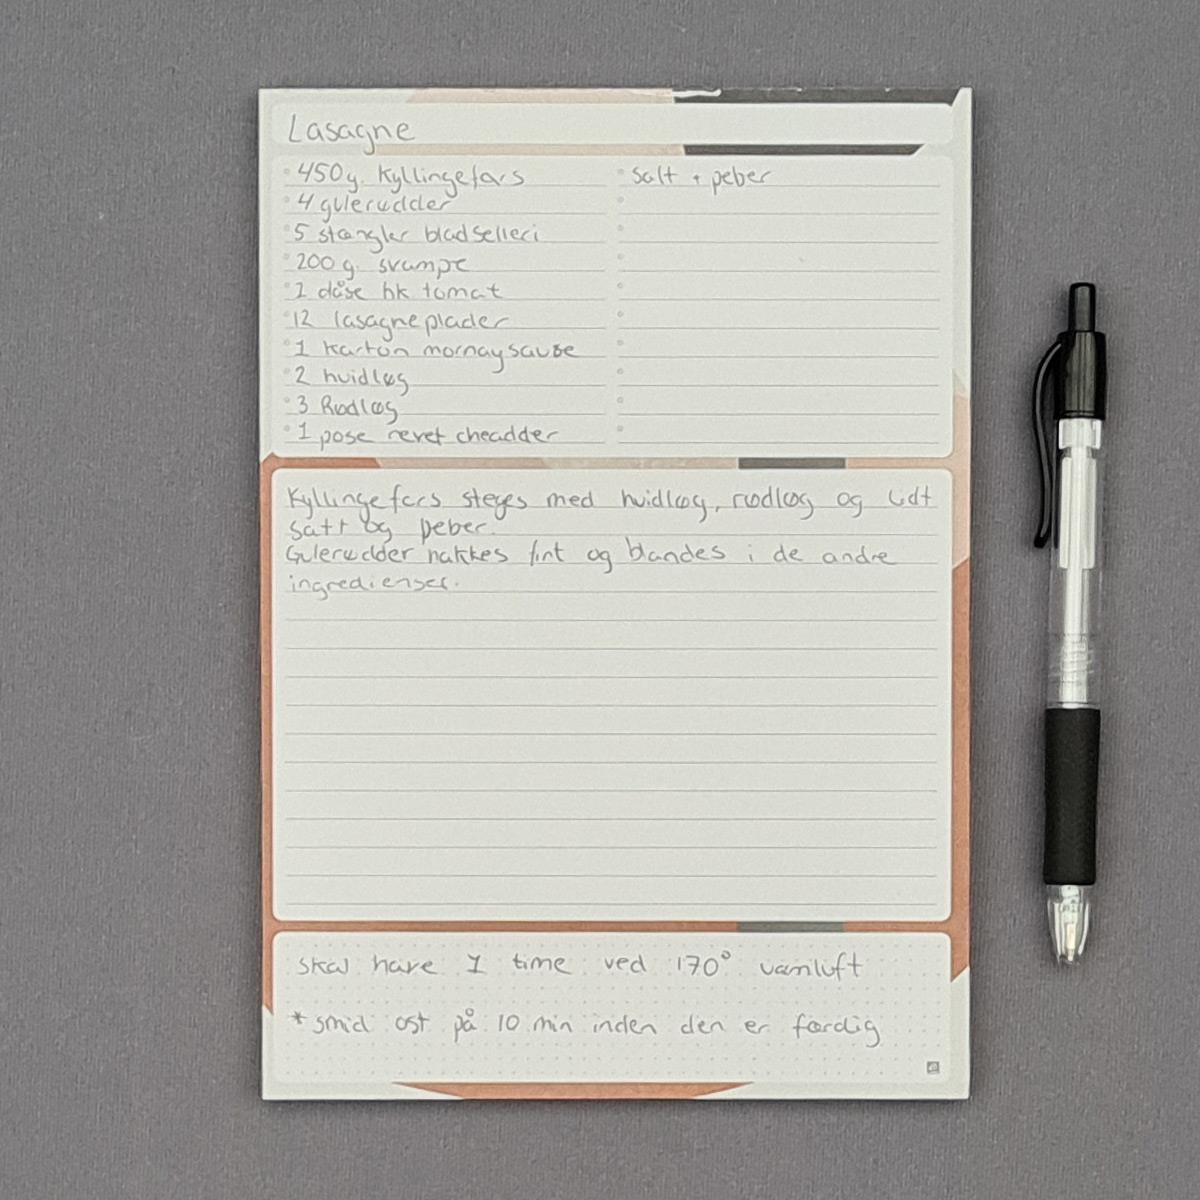 Lasagne
450g. Kyllingefars
4 gulerødder
5 stængler bladselleri
200 g. svampe
1 dåse hk tomat
12 lasagneplader
1 Karton mornaysause
2 hvidløg
3 Rødløg
1 pose revet cheadder
salt + peber
Kyllingefars steges med hvidløg, rødløg og lidt
salt og peber.
Gulerødder hakkes fint og blandes i de andre
ingredienser.
skal have 1 time ved 170° varmluft
*smid ost på 10 min inden den er færdig